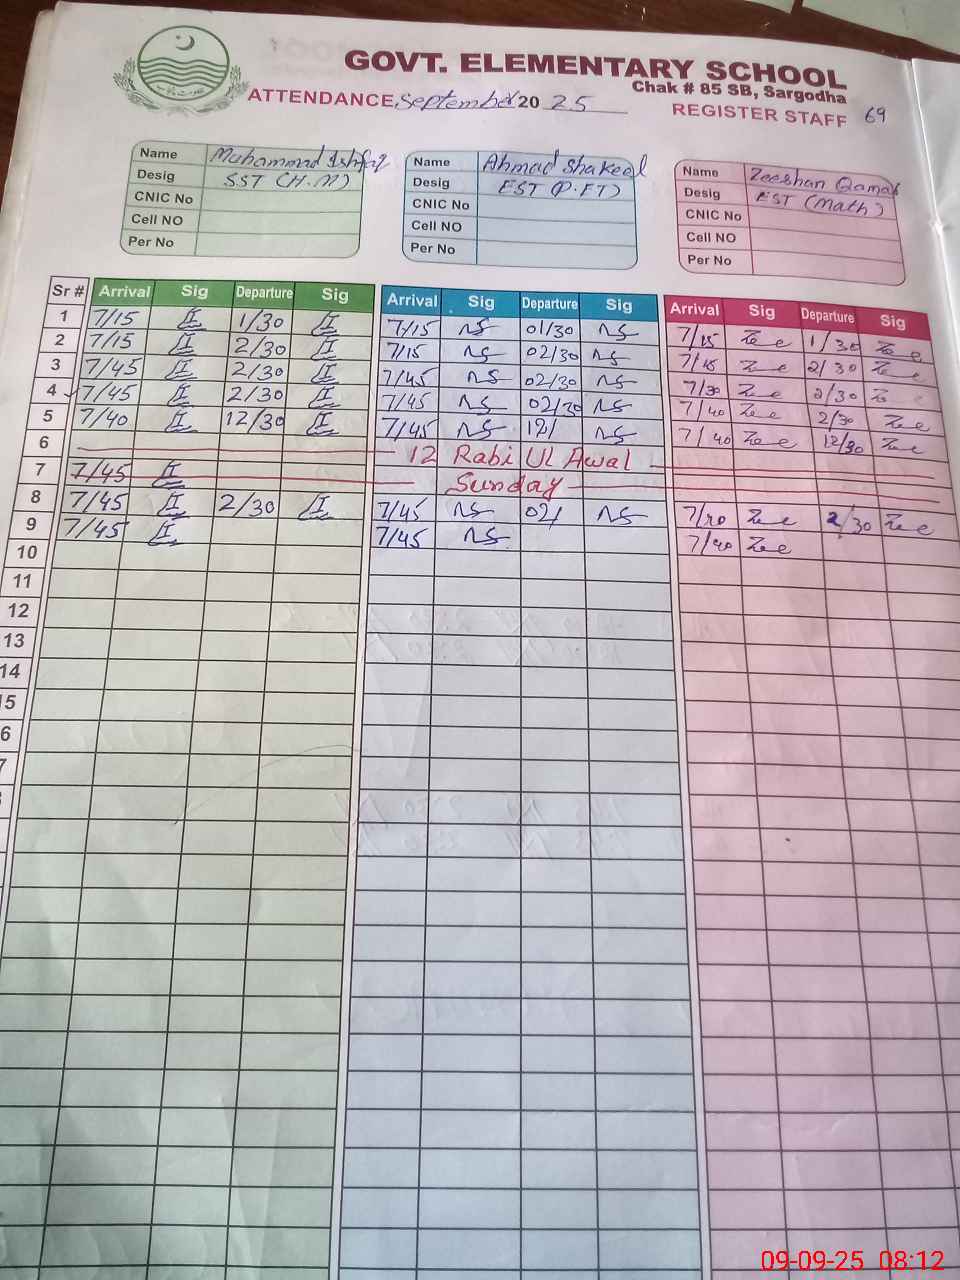 GOVT. ELEMENTARY SCHOOL
Chak # 85 SB, Sargodha
ATTENDANCE, September 2025
REGISTER STAFF 69
Name Muhammad Ishfaq
Desig SST (H.M)
CNIC No
Cell NO
Per No
Name Ahmad Shakeel
Desig EST (P.ET)
CNIC No
Cell NO
Per No
Name Zeeshan Qamar
Desig EST (Math)
CNIC No
Cell NO
Per No
Sr # Arrival Sig Departure Sig Arrival Sig Departure Sig Arrival Sig Departure Sig
1 7/15 1/30 7/15 01/30 7/15 1/30
2 7/15 2/30 7/15 02/30 7/15 2/30
3 7/45 2/30 7/45 02/30 7/30 2/30
4 7/45 2/30 7/45 02/30 7/40 2/30
5 7/40 12/30 7/45 12/ 7/40 12/30
6 12 Rabi Ul Awal
7 7/45 Sunday
8 7/45 2/30 7/45 02/ 2/30
9 7/45 7/45 7/40
10
11
12
13
14
15
6
7
09-09-25 08:12